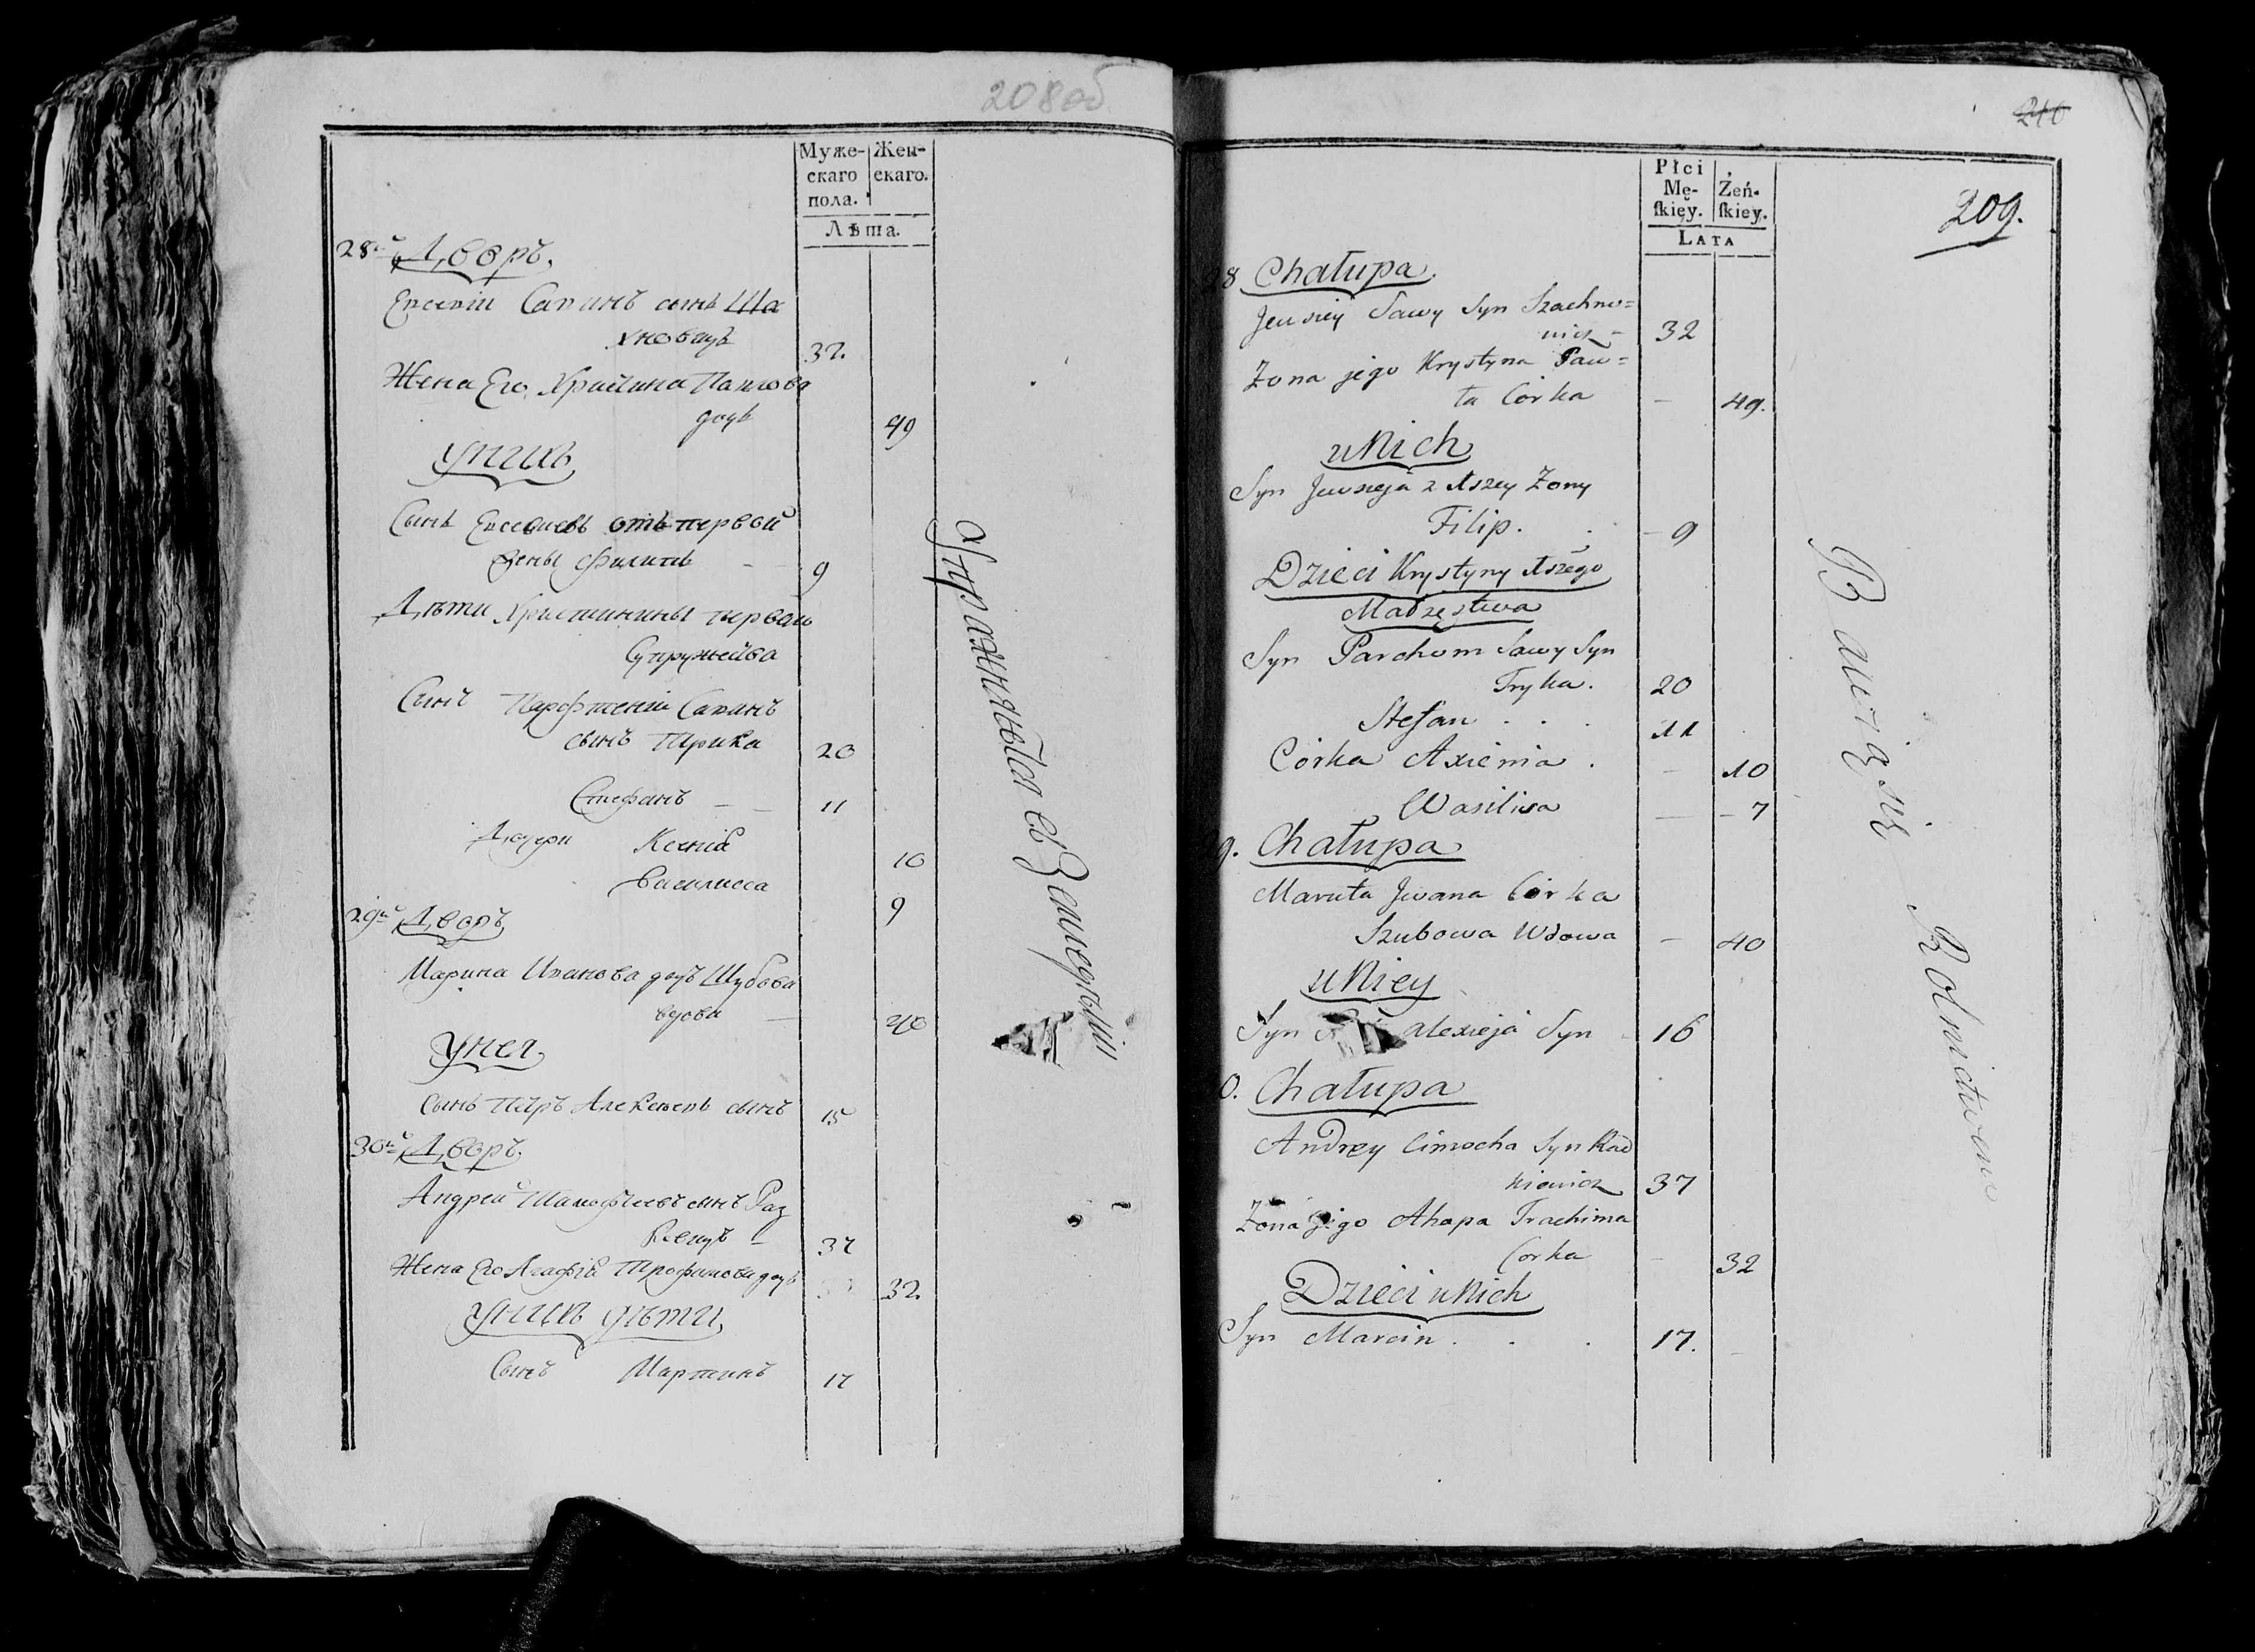 208об
Муже-
скаго
пола.
Жен-
скаго.
Лѣта.
28й Дворъ.
Евсевій Савинъ сынъ Ша
хновичъ 32.
Жена Его Христина Павлова
дочь 49
У нихъ
Сынъ Евсевіевъ отъ первой
жены Филипъ — — 9
Дѣти Христинины первагo
Супружества
Сынъ Парфтеній Савинъ
сынъ Трика 20
Стефанъ — — 11
Дочери Ксенія 10
Василисса 9
29й Дворъ
Марина Иванова дочь Шубова
вдова — 40
У нея
Сынъ Петръ Алексѣевъ сынъ 15
30й Дворъ.
Андрей Тимофѣевъ сынъ Рад
кевичъ — 37
Жена Его Агафія Трофимова дочь 32.
У нихъ дѣти
Сынъ Мартинъ 17
Упражняются въ Земледѣліи
210
209.
Płci
Mę-
skiey.
Żeń-
skiey.
LATA
28 Chałupa.
Jewsiey Sawy Syn Szachno=
wicz — 32
Zona jego Krystyna Paw=
ła Córka — 49.
u Nich
Syn Jewsieja z 1szey Zony
Filip. — 9
Dzieci Krystyny 1szego
Małżęstwa
Syn Parchom Sawy Syn
Tryka. 20
Stefan . . . 11
Córka Axienia . — 10
Wasilisa — 7
9. Chałupa
Maruta Jwana Córka
Szubowa Wdowa — 40
u Niey
Syn Alexieja Syn — 16
0. Chałupa
Andrey Cimocha Syn Rad
kiewicz 37
Zona jego Ahapa Trachima
Corka — 32
Dzieci u Nich
Syn Marcin . . . 17.
Bawią się Rolnictwem